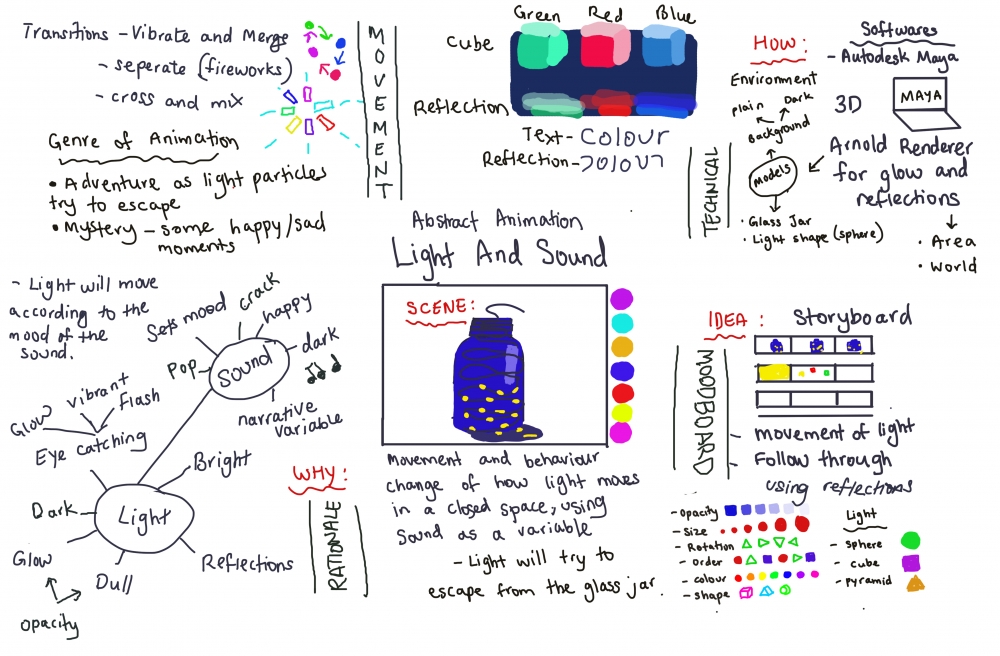 Transitions - Vibrate and Merge
- seperate (fireworks)
- cross and mix
MOVEMENT
Genre of Animation
• Adventure as light particles
try to escape
• Mystery - some happy/sad
moments
Green Red Blue
Cube
Reflection
Text - Colour
Reflection -
HOW:
Softwares
- Autodesk Maya
MAYA
3D
Environment
Plain Dark
Background
Models
• Glass Jar
• Light shape (sphere)
Arnold Renderer
for glow and
reflections
• Area
• World
TECHNICAL
Abstract Animation
Light And Sound
- Light will move
according to the
mood of the
sound.
Sets mood
crack
happy
dark
Pop
Sound
narrative
variable
Glow
vibrant
Flash
Eye catching
Bright
Dark
Light
Glow
Dull
Reflections
opacity
WHY:
RATIONALE
SCENE:
Movement and behaviour
change of how light moves
in a closed space, using
Sound as a variable
- Light will try to
escape from the glass jar.
IDEA: Storyboard
MOODBOARD
- movement of light
- Follow through
using reflections
- Opacity
- Size
- Rotation
- Order
- colour
- shape
Light
- sphere
- cube
- pyramid